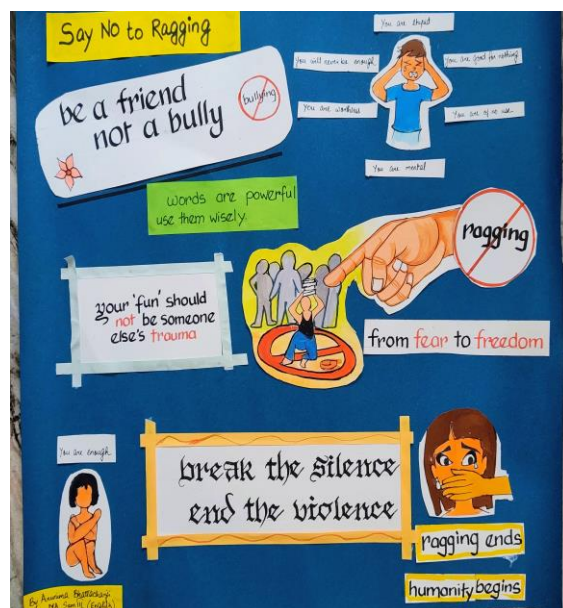 Say No to Ragging
be a friend
not a bully
bullying
You are stupid
You will never be enough
You are good for nothing
You are worthless
You are of no use
You are mental
words are powerful
use them wisely.
ragging
your 'fun' should
not be someone
else's trauma
from fear to freedom
You are enough
break the silence
end the violence
ragging ends
humanity begins
By
(English)